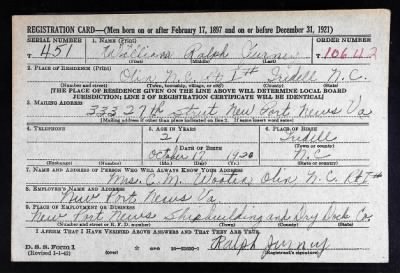 REGISTRATION CARD—(Men born on or after February 17, 1897 and on or before December 31, 1921)
SERIAL NUMBER 1. NAME (Print) ORDER NUMBER
T 451 William Ralph T 10642
(First) (Middle) (Last)
2. PLACE OF RESIDENCE (Print)
Olin N.C. Rt 1# Iredell N.C.
(Number and street) (Town, township, village, or city) (County) (State)
[THE PLACE OF RESIDENCE GIVEN ON THE LINE ABOVE WILL DETERMINE LOCAL BOARD
JURISDICTION; LINE 2 OF REGISTRATION CERTIFICATE WILL BE IDENTICAL]
3. MAILING ADDRESS
333 27th Street New Port News Va
(Mailing address if other than place indicated on line 2. If same insert word same)
4. TELEPHONE 5. AGE IN YEARS 6. PLACE OF BIRTH
21 Iredell
DATE OF BIRTH (Town or county)
October 17 1920 N.C.
(Exchange) (Number) (Mo.) (Day) (Yr.) (State or country)
7. NAME AND ADDRESS OF PERSON WHO WILL ALWAYS KNOW YOUR ADDRESS
Mrs. C. M. Wooten Olin N.C. Rt 1#
8. EMPLOYER'S NAME AND ADDRESS
New Port News Va.
9. PLACE OF EMPLOYMENT OR BUSINESS
New Port News Shipbuilding and Dry Dock Co.
(Number and street or R. F. D. number) (Town) (County) (State)
I AFFIRM THAT I HAVE VERIFIED ABOVE ANSWERS AND THAT THEY ARE TRUE.
D. S. S. Form 1
(Revised 1-1-42) (over) Ralph Gurney
(Registrant's signature)